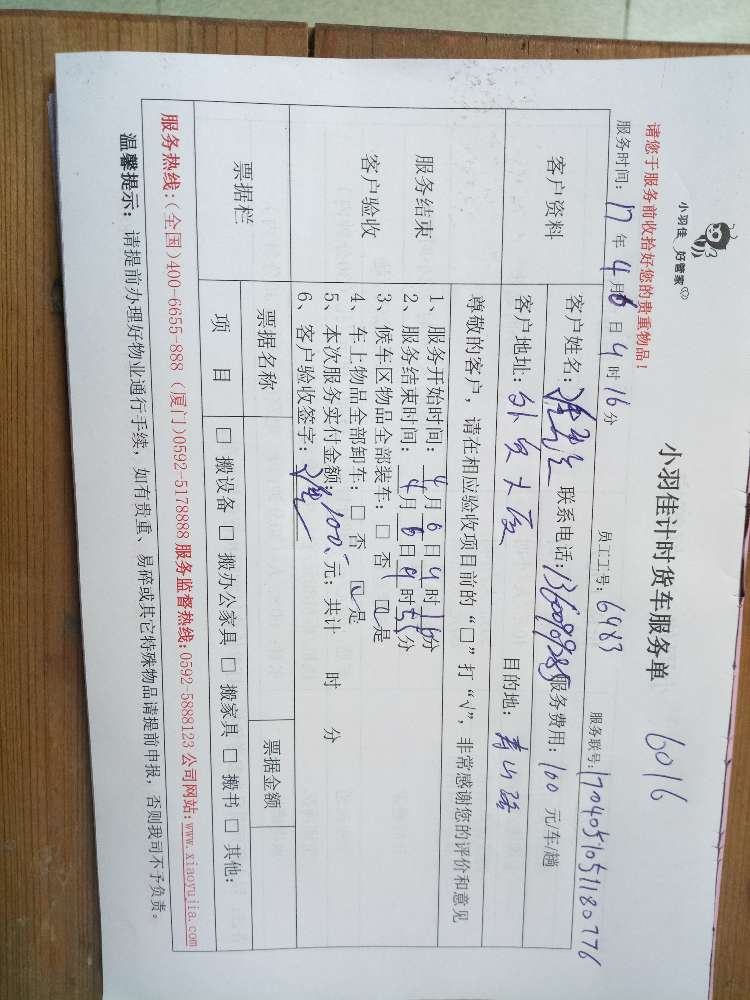 小羽佳 好管家
小羽佳计时货车服务单 6016
请您于服务前收拾好您的贵重物品!
服务时间: 17 年 4 月 6 日 4 时 16 分 员工工号: 6483 服务联号: 1704051051180776
客户资料
客户姓名: 联系电话: 服务费用: 100 元/车/趟
客户地址: 外贸大厦 目的地: 青山路
服务结束
客户验收
尊敬的客户,请在相应验收项目前的“□”打“√”,非常感谢您的评价和意见
1、服务开始时间: 4 月 6 日 4 时 16 分
2、服务结束时间: 4 月 6 日 4 时 51 分
3、候车区物品全部装车: □ 否 ☑ 是
4、车上物品全部卸车: □ 否 ☑ 是
5、本次服务实付金额: 100 元; 共计 时 分
6、客户验收签字:
票据栏
票据名称 票据金额
项 目 □ 搬设备 □ 搬办公家具 □ 搬家具 □ 搬书 □ 其他:
服务热线:(全国)400-6655-888 (厦门)0592-5178888 服务监督热线:0592-5888123 公司网站:www.xiaoyujia.com
温馨提示: 请提前办理好物业通行手续, 如有贵重、易碎或其它特殊物品请提前申报, 否则我司不予负责。